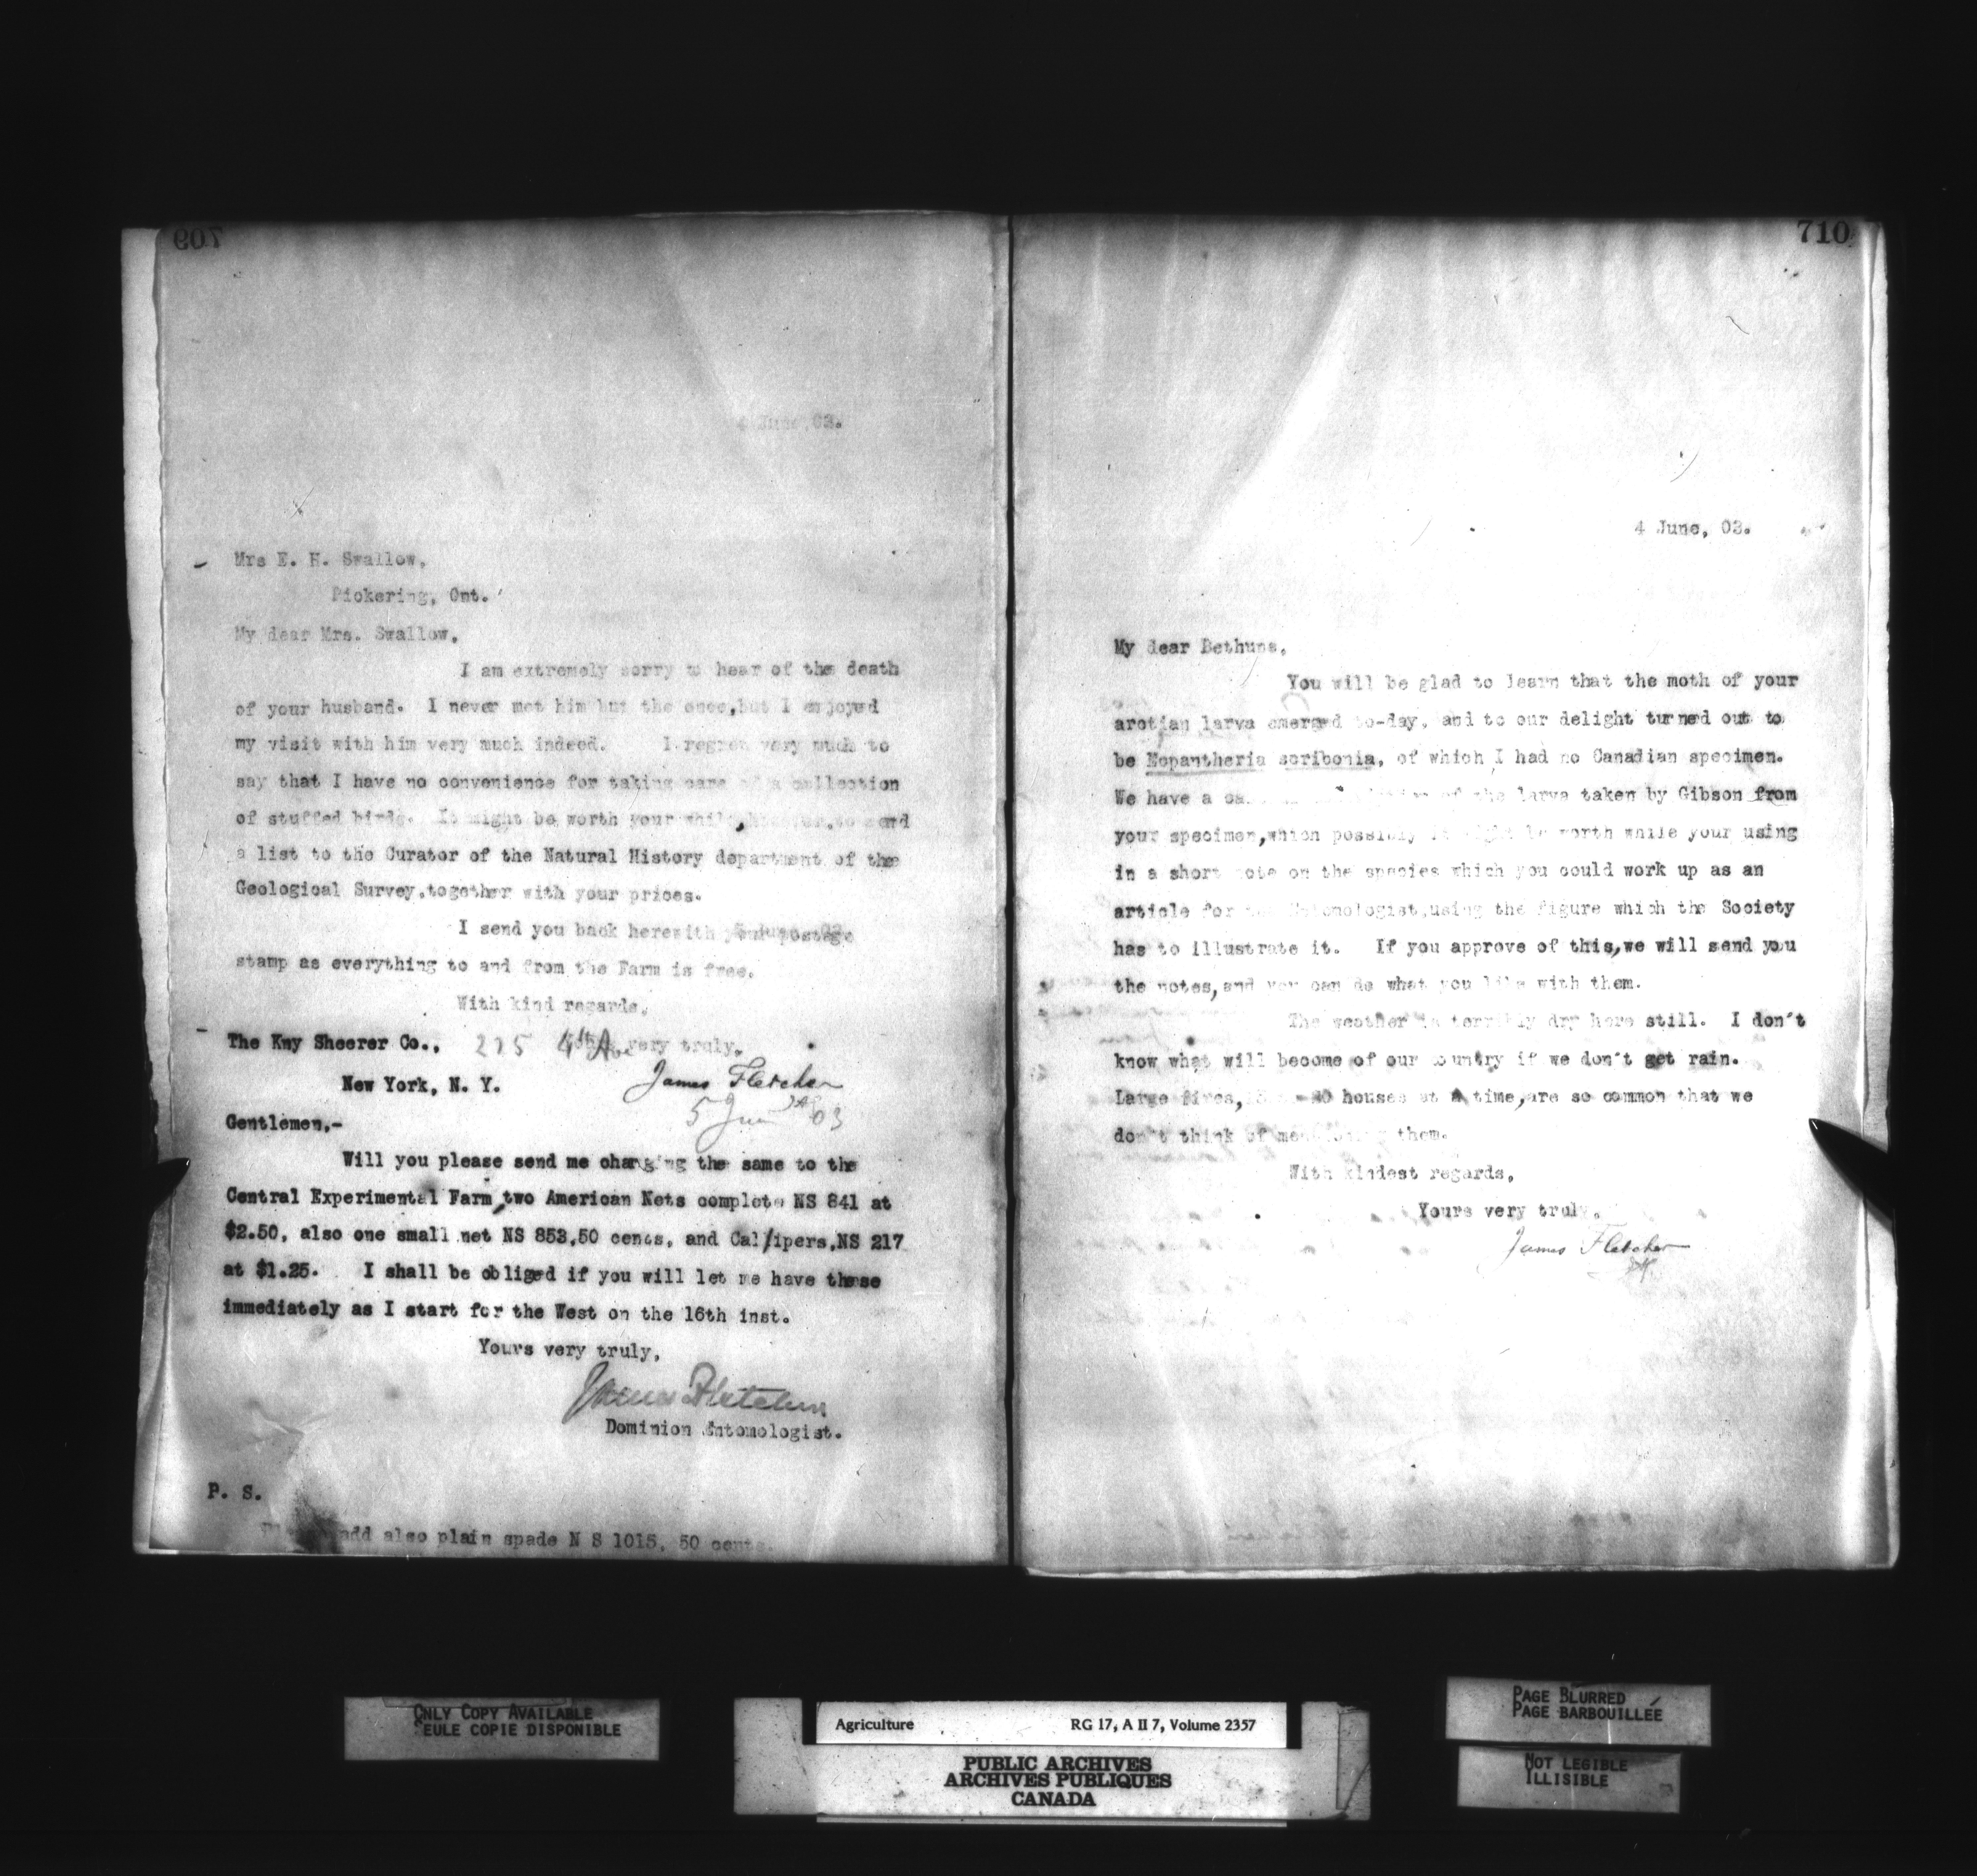 709
4 June, 03.
Mrs E. H. Swallow,
Pickering, Ont.
My dear Mrs. Swallow,
I am extremely sorry to hear of the death
of your husband. I never met him but the once, but I enjoyed
my visit with him very much indeed. I regret very much to
say that I have no convenience for taking care of a collection
of stuffed birds. It might be worth your while, however, to send
a list to the Curator of the Natural History department of the
Geological Survey, together with your prices.
I send you back herewith your postage
stamp as everything to and from the Farm is free.
With kind regards,
very truly,
James Fletcher
The Kny Sheerer Co., 225 4th Ave
New York, N. Y.
5 June 03
Gentlemen,-
Will you please send me charging the same to the
Central Experimental Farm, two American Nets complete NS 841 at
$2.50, also one small net NS 853, 50 cents, and Cal/ipers, NS 217
at $1.25. I shall be obliged if you will let me have these
immediately as I start for the West on the 16th inst.
Yours very truly,
James Fletcher
Dominion Entomologist.
P. S.
add also plain spade N S 1015, 50 cents.
710
4 June, 03.
My dear Bethune,
You will be glad to learn that the moth of your
arctian larva emerged to-day, and to our delight turned out to
be Ecpantheria scribonia, of which I had no Canadian specimen.
We have a of the larva taken by Gibson from
your specimen, which possibly it might be worth while your using
in a short note on the species which you could work up as an
article for the Entomologist, using the figure which the Society
has to illustrate it. If you approve of this, we will send you
the notes, and you can do what you like with them.
The weather is terribly dry here still. I don't
know what will become of our country if we don't get rain.
Large fires, houses at a time, are so common that we
don't think of mentioning them.
With kindest regards,
Yours very truly,
James Fletcher
ONLY COPY AVAILABLE
SEULE COPIE DISPONIBLE
Agriculture RG 17, A II 7, Volume 2357
PUBLIC ARCHIVES
ARCHIVES PUBLIQUES
CANADA
PAGE BLURRED
PAGE BARBOUILLÉE
NOT LEGIBLE
ILLISIBLE